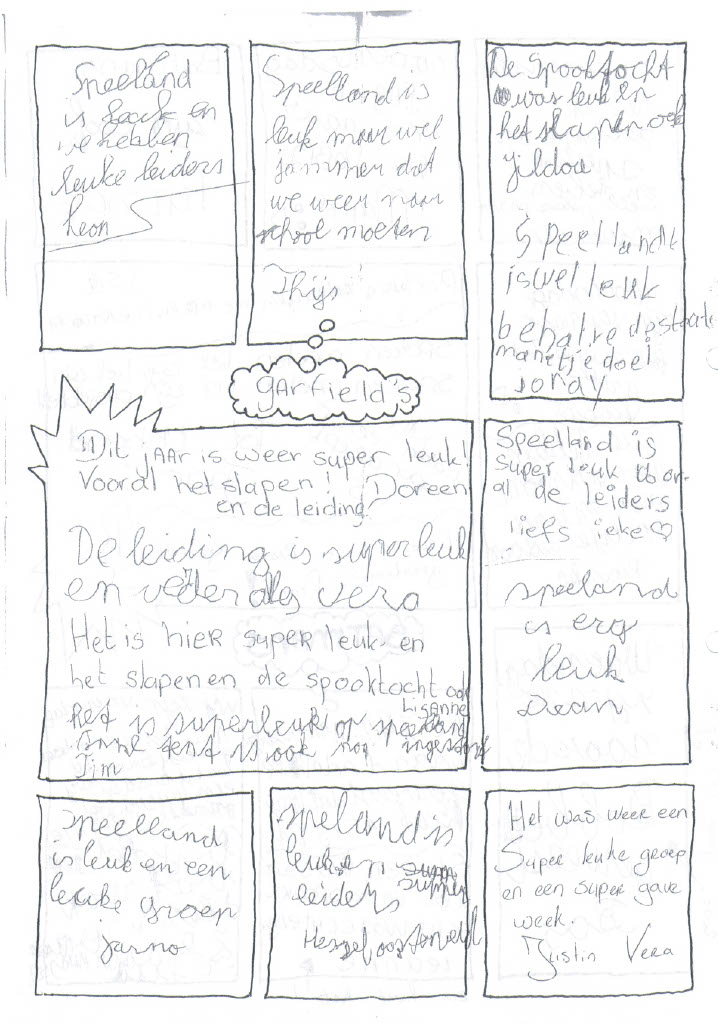 Speeland
is leuk en
we hebben
leuke leiders
leon
Speelland is
leuk maar wel
jammer dat
we weer naar
school moeten
Thijs
De Spooktocht
was leuk en
het slapen ook
jildou
Speellandt
is wel leuk
behalve de
manetje doei
jorday
gARfield's
Dit jAAr is weer super leuk!
Vooral het slapen! Doreen
en de leiding!
De leiding is super leuk
en verder alles vera
Het is hier super leuk en
het slapen en de spooktocht ook
Lisanne
Het is superleuk op speelland
tent is ook nog ingestort
Tim
Speelland is
super leuk voor-
al de leiders
liefs ieke♡
speeland
is erg
leuk
Dean
speelland
is leuk en een
leuke groep
jarno
speland is
leuk en
supper
leiders
Hessel oosterveld
Het was weer een
Super leuke groep
en een super gave
week.
Justin Vera